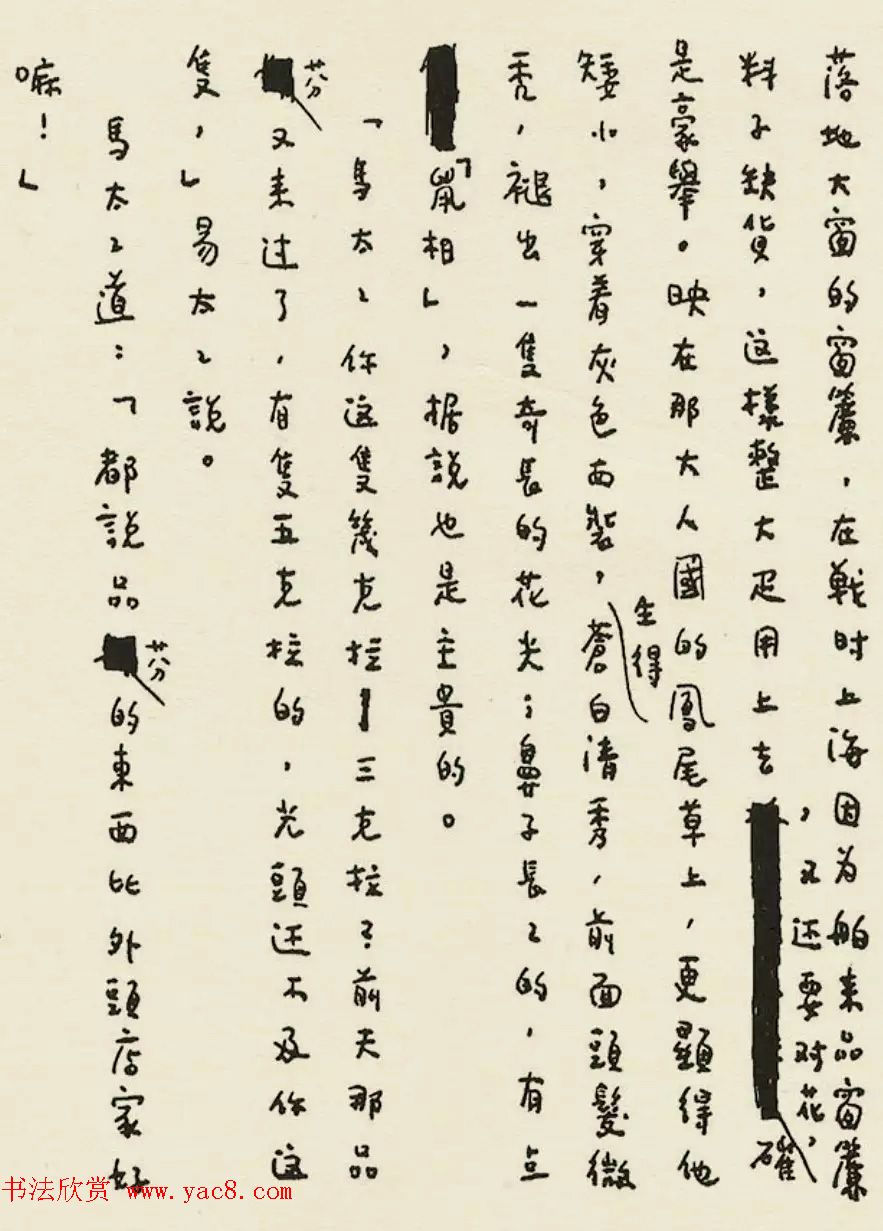 落地大窗的窗簾，在戰时上海因为舶来品窗簾
料子缺貨，这樣整大疋用上去，又还要对花，確
是豪舉。映在那大人國的鳳尾草上，更顯得他
矮小，穿着灰色西裝，生得蒼白清秀，前面頭髮微
秃，褪出一隻奇長的花尖；鼻子長々的，有点
「鼠相」，据說也是主貴的。
「馬太々你这隻幾克拉──三克拉？前天那品
芬又来过了，有隻五克拉的，光頭还不及你这
隻，」易太々說。
馬太々道：「都說品芬的東西比外頭店家好
嘛！」
书法欣赏 www.yac8.com